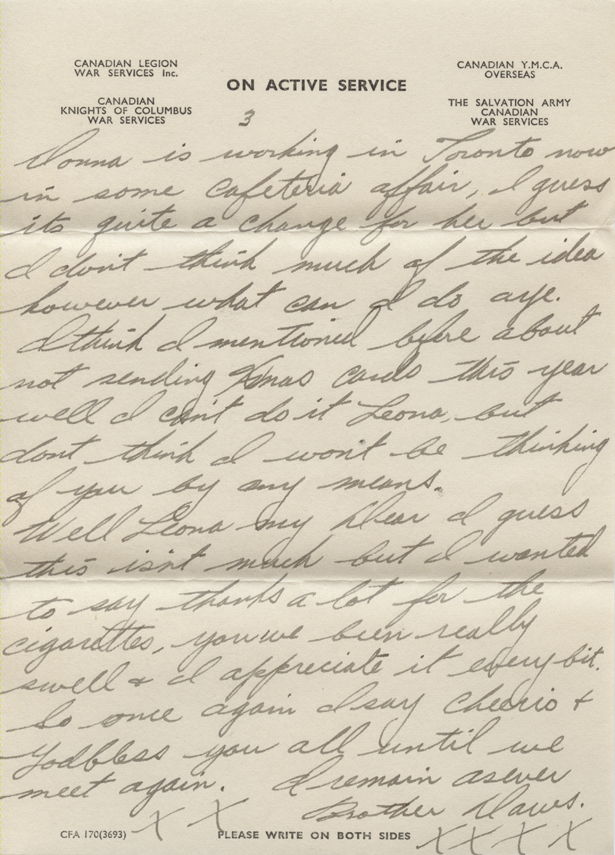 CANADIAN LEGION
WAR SERVICES Inc.
CANADIAN
KNIGHTS OF COLUMBUS
WAR SERVICES
ON ACTIVE SERVICE
CANADIAN Y.M.C.A.
OVERSEAS
THE SALVATION ARMY
CANADIAN
WAR SERVICES
3
Donna is working in Toronto now
in some cafeteria affair, I guess
its quite a change for her but
I don't think much of the idea
however what can I do aye.
I think I mentioned before about
not sending Xmas cards this year
well I can't do it Leona, but
dont think I won't be thinking
of you by any means.
Well Leona my Dear I guess
this isn't much but I wanted
to say thanks a lot for the
cigarettes, you've been really
swell & I appreciate it every bit.
So once again I say Cheerio &
Godbless you all until we
meet again. I remain as ever
Brother
X X
X X X X
CFA 170(3693)
PLEASE WRITE ON BOTH SIDES